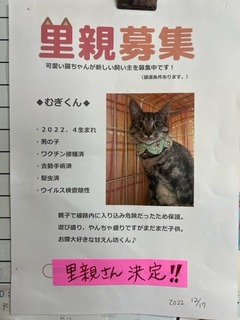 里親募集
可愛い猫ちゃんが新しい飼い主を募集中です！
（譲渡条件あります。）
◆むぎくん◆
・２０２２．４生まれ
・男の子
・ワクチン接種済
・去勢手術済
・駆虫済
・ウイルス検査陰性
親子で線路内に入り込み危険だったため保護。
遊び盛り、やんちゃ盛りですがまだまだ子供。
お膝大好きな甘えん坊くん♪
里親さん 決定!!
2022 12/17